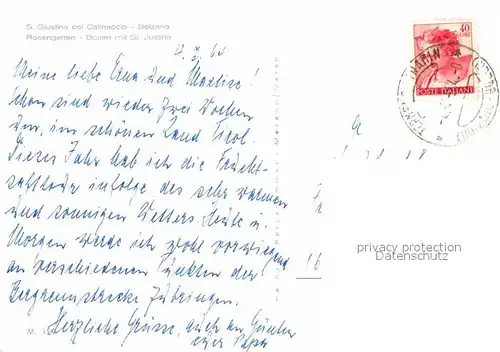 S. Giustina col Catinaccio - Bolzano
Rosengarten - Bozen mit St. Justina
Meine liebe Erna und Marlise!
Schon sind wieder zwei Wochen
um, im schönen Land Tirol.
Dieses Jahr hab ich die
infolge des sehr warmen
und sonnigen Wetters Heute u.
Morgen werde ich wohl vorwiegend
an verschiedenen Punkten der
Bergrennstrecke zubringen.
Herzliche Grüsse, auch an Günther
euer Papa
40
LIRE
POSTE ITALIANE
privacy protection
Datenschutz